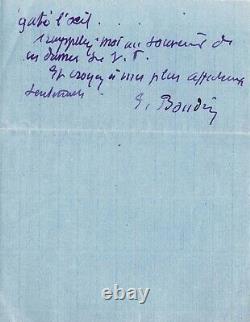 gâté l'oeil.
rappelez-moi au souvenir de
ces dames de J. T.
Et croyez à mes plus affectueux
sentiments
E. Baudin
ebay